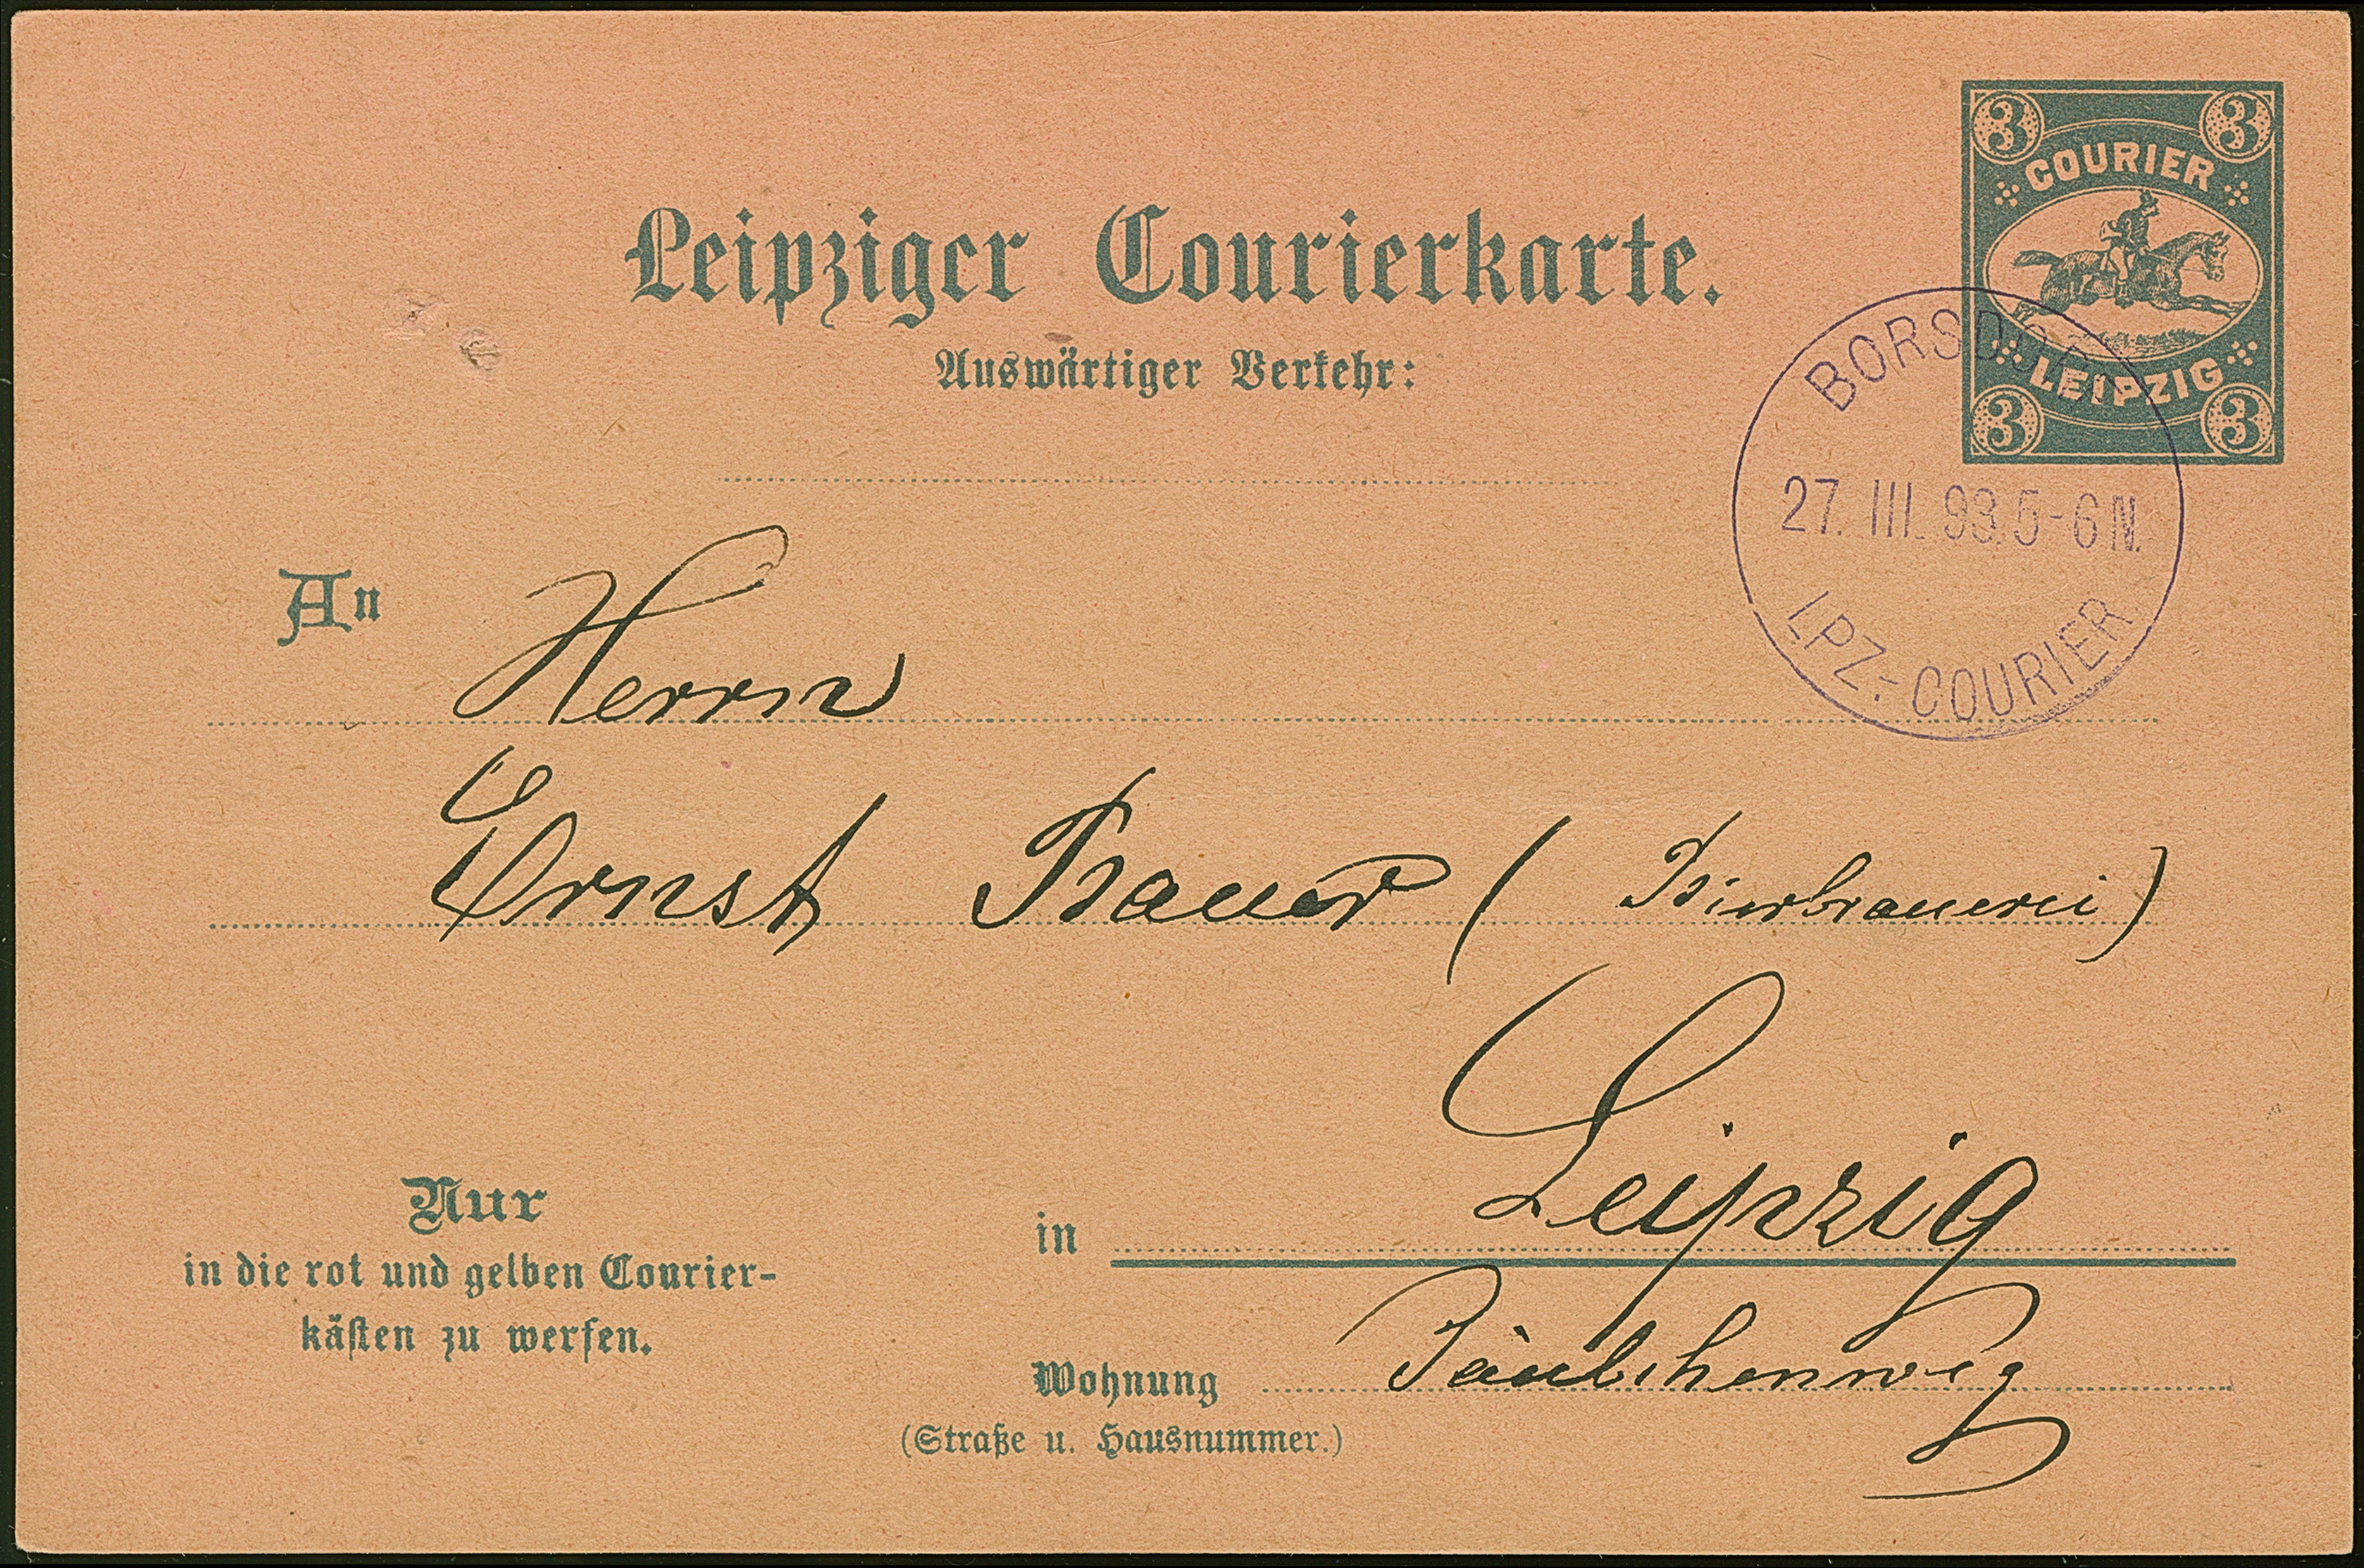 Leipziger Courierkarte.
Auswärtiger Verkehr:
3 3
COURIER
LEIPZIG
3 3
BORSDORF
27. III. 93. 5-6 N.
LPZ.-COURIER
An
Herrn
Ernst Bauer (Bierbrauerei)
in Leipzig
Nur
in die rot und gelben Courier-
kästen zu werfen.
Wohnung Täubchenweg
(Straße u. Hausnummer.)